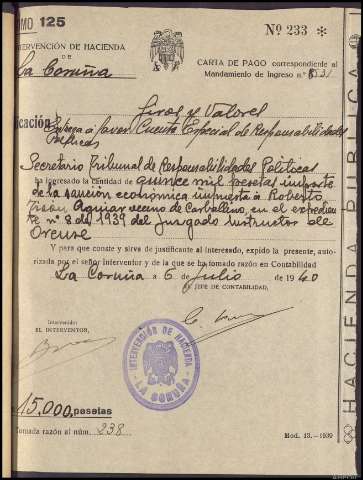 MO 125
Nº 233 *
INTERVENCIÓN DE HACIENDA
DE
La Coruña
CARTA DE PAGO correspondiente al
Mandamiento de Ingreso n.º 8531
Giros y Valores
icación
Entrega a favor Cuenta Especial de Responsabilidades
Políticas
Secretario Tribunal de Responsabilidades Políticas
ha ingresado la cantidad de quince mil pesetas importe
de la sanción económica impuesta a Roberto
Aguirre vecino de Carballino, en el expedien
te nº 8 de 1939 del Juzgado Instructor de
Orense
Y para que conste y sirva de justificante al interesado, expido la presente, auto-
rizada por el señor Interventor y de la que se ha tomado razón en Contabilidad
La Coruña a 6 de Julio de 1940
EL JEFE DE CONTABILIDAD,
Intervenido:
EL INTERVENTOR,
INTERVENCIÓN DE HACIENDA
LA CORUÑA
15.000, pesetas
Tomada razón al núm. 238
Mod. 13.-1939